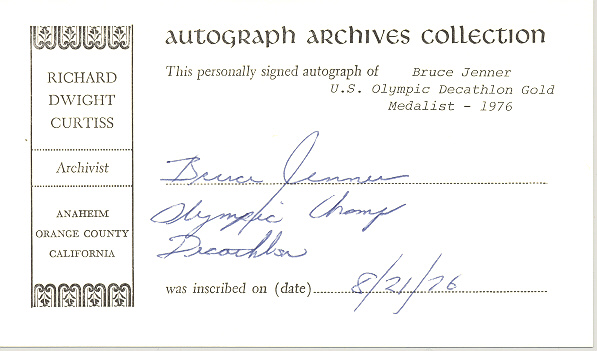 RICHARD
DWIGHT
CURTISS
Archivist
ANAHEIM
ORANGE COUNTY
CALIFORNIA
AUTOGRAPH ARCHIVES COLLECTION
This personally signed autograph of Bruce Jenner
U.S. Olympic Decathlon Gold
Medalist - 1976
Bruce Jenner
Olympic Champ
Decathlon
was inscribed on (date) 8/21/76